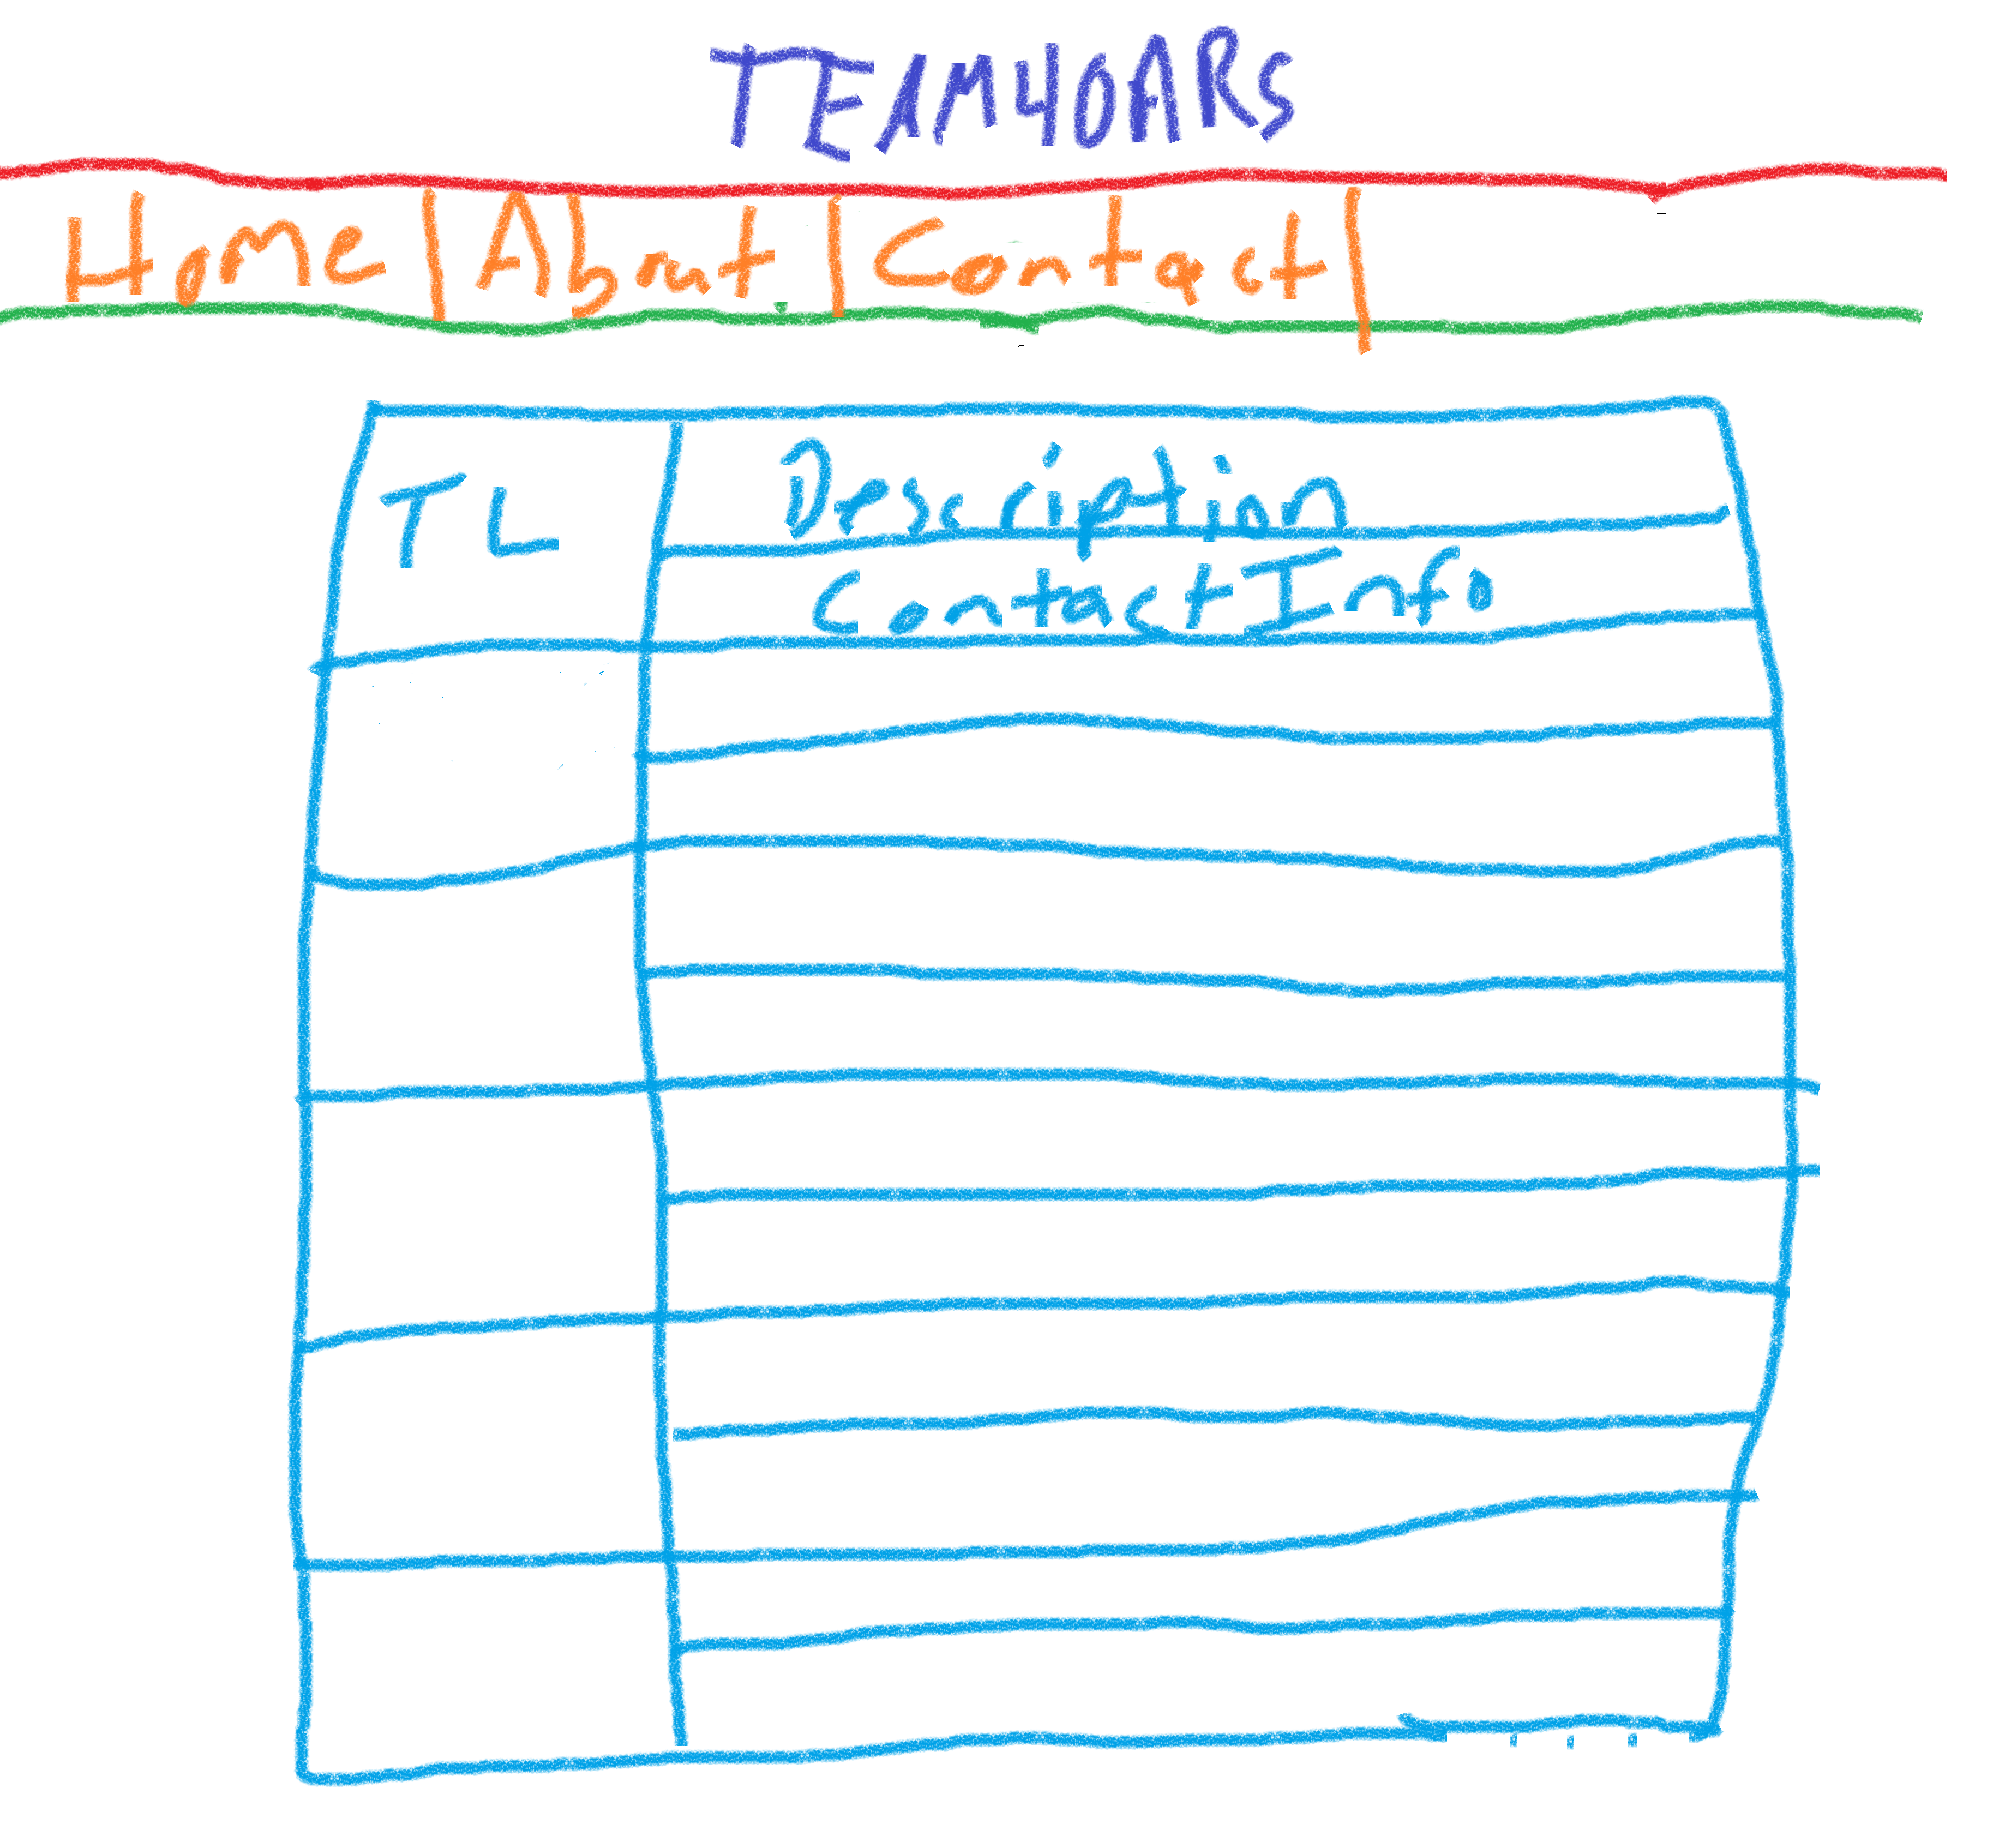 TEAM40ARS
Home | About | Contact |
TL
Description
Contact Info